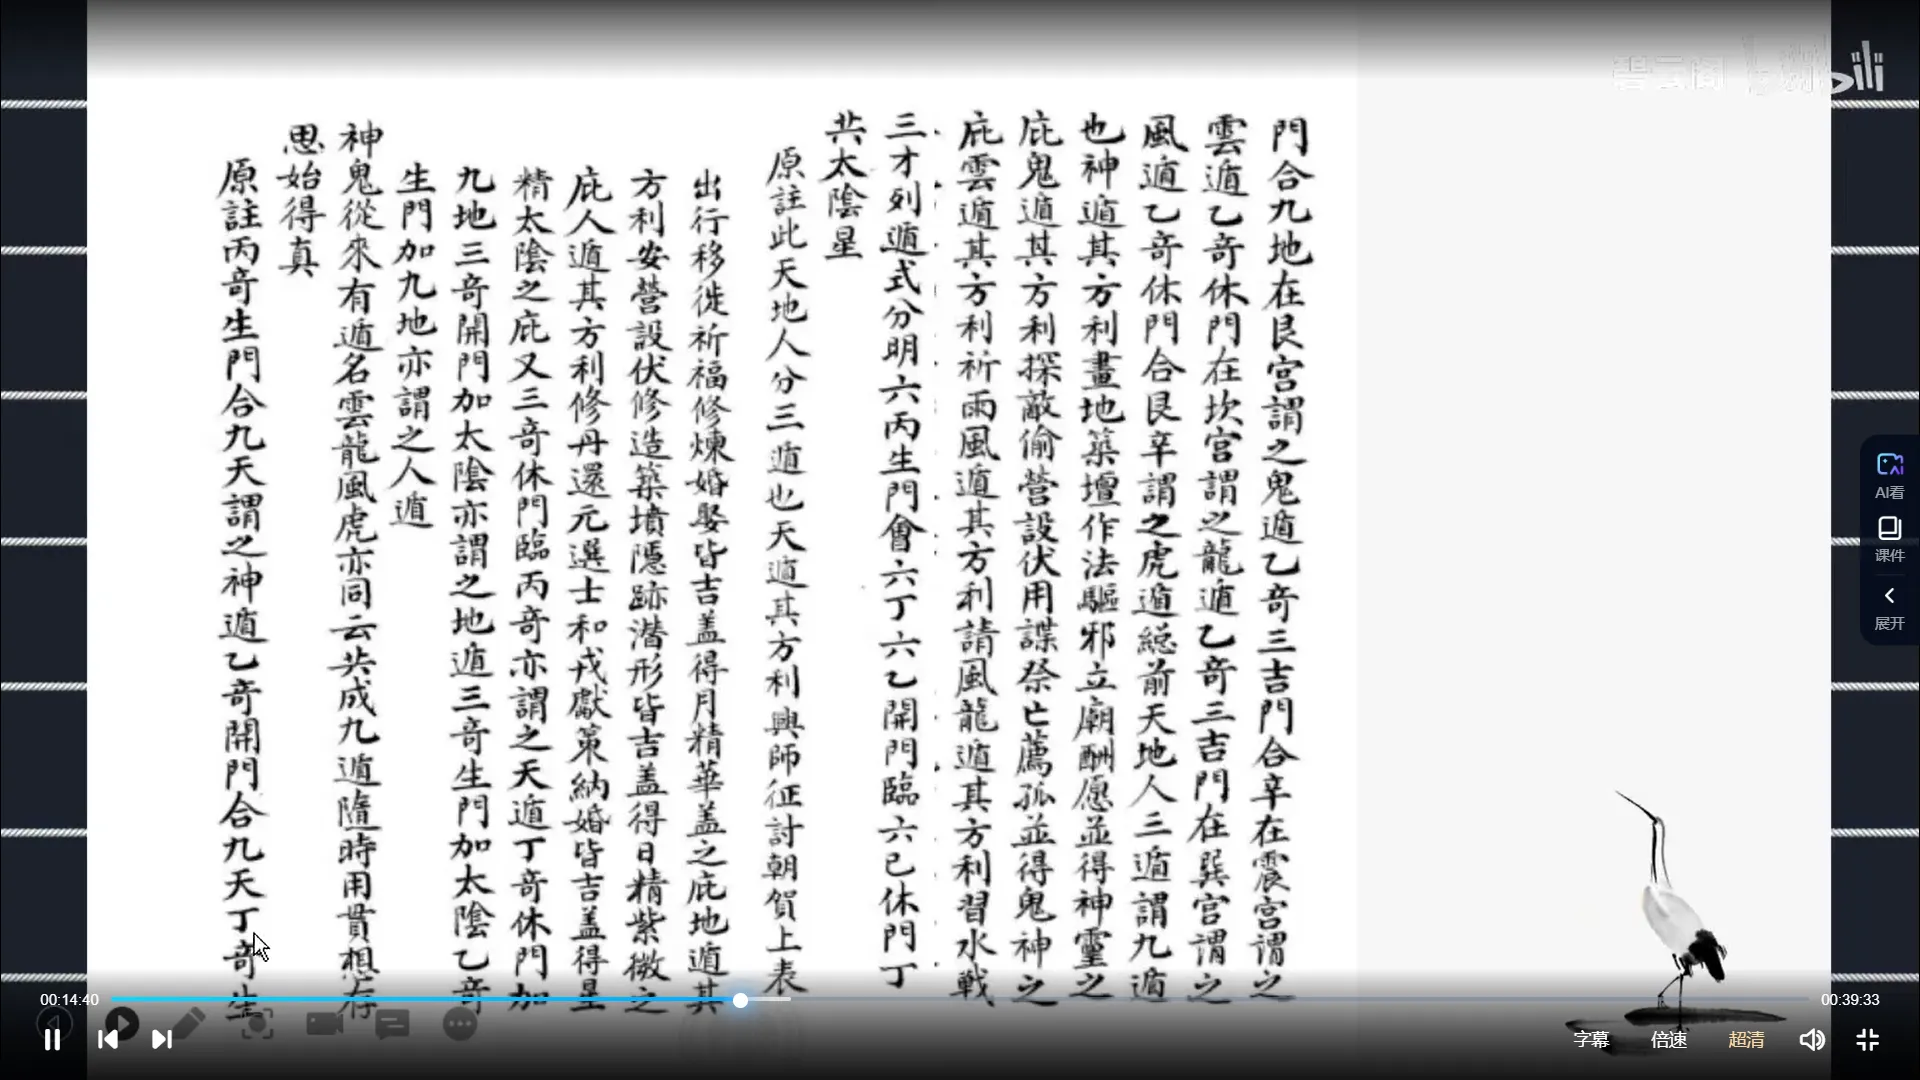 門合九地在艮宮謂之鬼遁乙奇三吉門合辛在震宮谓之
雲遁乙奇休門在坎宮謂之龍遁乙奇三吉門在巽宮谓之
風遁乙奇休門合艮辛謂之虎遁総前天地人三遁謂九遁
也神遁其方利畫地築壇作法驅邪立廟酬愿並得神靈之
庇鬼遁其方利探敵偷營設伏用諜祭亡薦孤並得鬼神之
庇雲遁其方利祈雨風遁其方利請風龍遁其方利習水戰
三才列遁式分明六丙生門會六丁六乙開門臨六己休門丁
共太陰星
原註此天地人分三遁也天遁其方利興師征討朝賀上表
出行移徙祈福修煉婚娶皆吉盖得月精華盖之庇地遁其
方利安營設伏修造築墳隱跡潜形皆吉盖得日精紫微之
庇人遁其方利修丹還元選士和戎獻策納婚皆吉盖得星
精太陰之庇又三奇休門臨丙奇亦謂之天遁丁奇休門加
九地三奇開門加太陰亦謂之地遁三奇生門加太陰乙奇
生門加九地亦謂之人遁
神鬼從來有遁名雲龍風虎亦同云共成九遁隨時用貫想存
思始得真
原註丙奇生門合九天謂之神遁乙奇開門合九天丁奇生
碧云阁 bilibili
AI看
课件
展开
00:14:40
00:39:33
字幕 倍速 超清